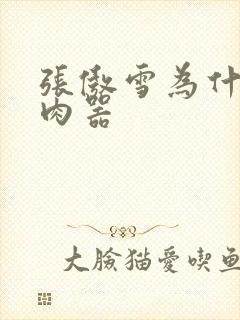 張傲雪為什
肉器
大臉猫愛喫魚